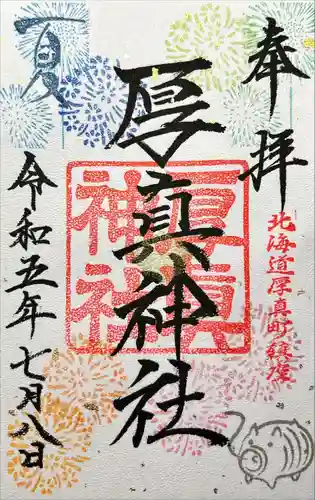 奉拝
北海道厚真町鎮座
厚真神社
厚真
神社
夏
令和五年七月八日